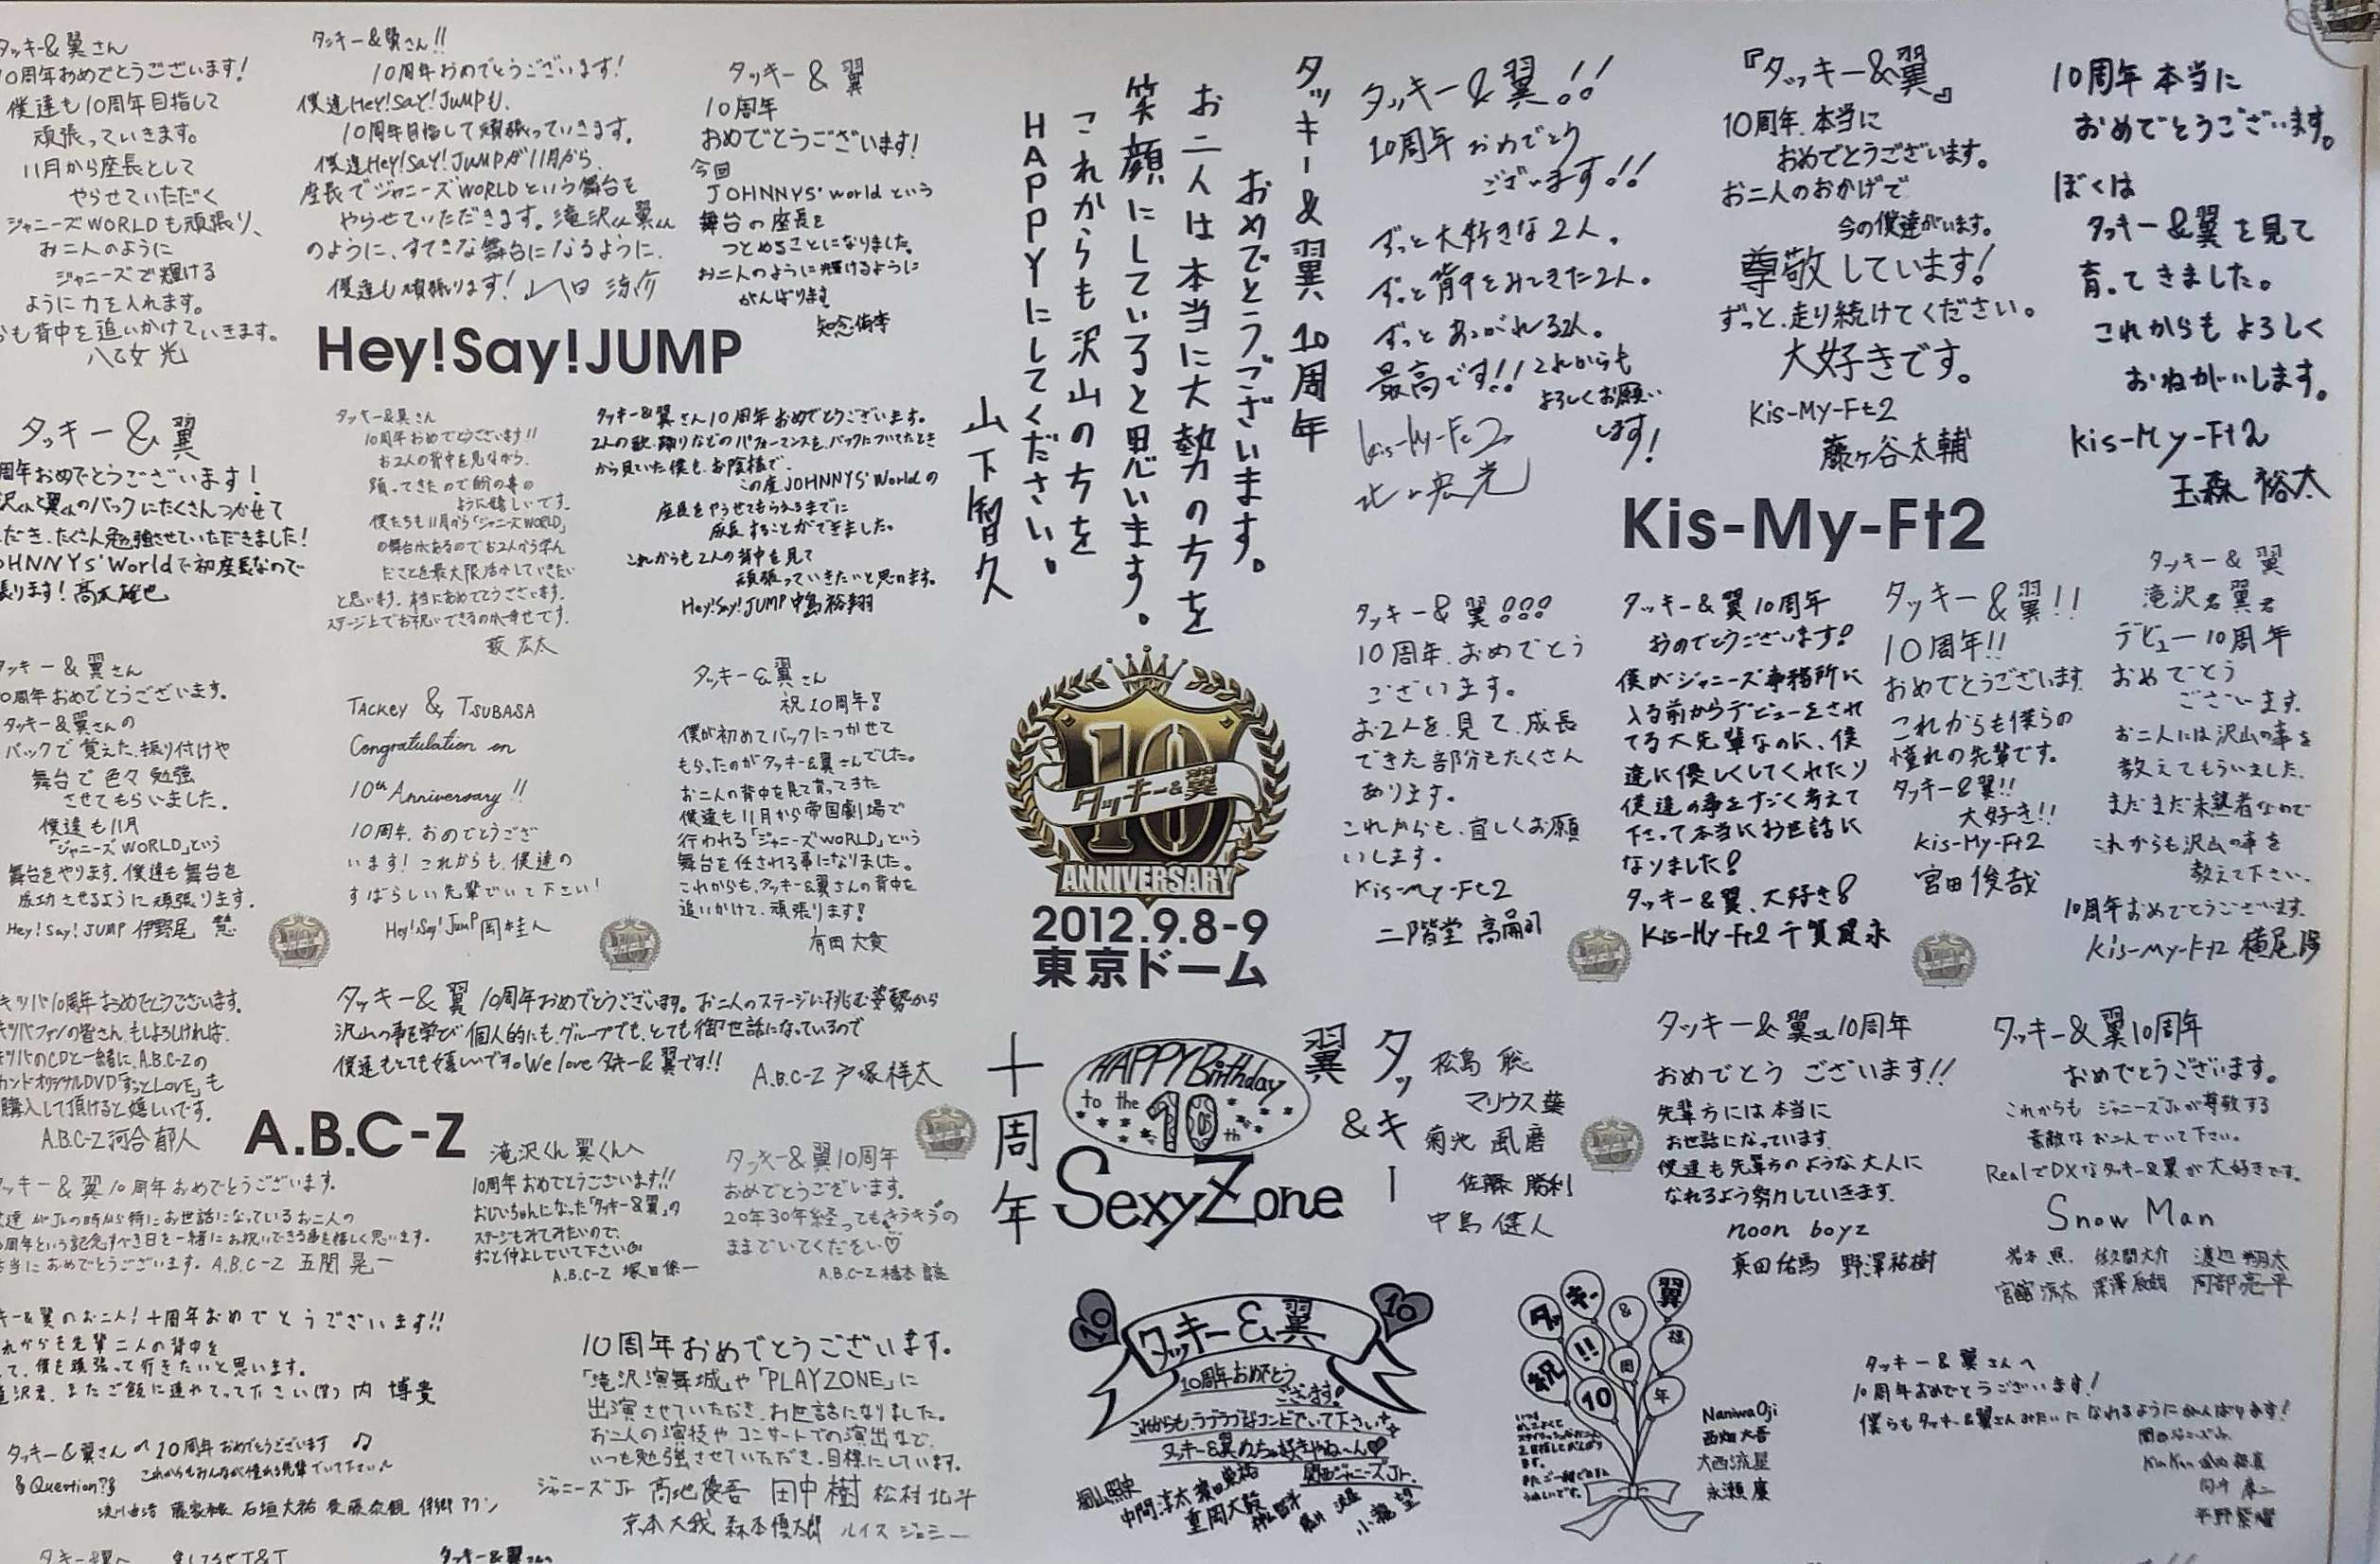 タッキー&翼さん
10周年おめでとうございます!
僕達も10周年目指して
頑張っていきます。
11月から座長として
やらせていただく
ジャニーズWORLDも頑張り、
お二人のように
ジャニーズで輝ける
ように力を入れます。
も背中を追いかけていきます。
八乙女 光
タッキー&翼さん!!
10周年おめでとうございます!
僕達Hey!Say!JUMPも、
10周年目指して頑張っていきます。
僕達Hey!Say!JUMPが11月から、
座長でジャニーズWORLDという舞台を
やらせていただきます。滝沢くん翼くん
のように、すてきな舞台になるように、
僕達も頑張ります! 山田 涼介
タッキー & 翼
10周年
おめでとうございます!
今回
JOHNNYS' worldという
舞台の座長を
つとめることになりました。
お二人のように輝けるように
がんばります
知念侑李
Hey!Say!JUMP
タッキー&翼
周年おめでとうございます!
沢くんと翼くんのバックにたくさんつかせて
ただき、たくさん勉強させていただきました!
HNNYS' Worldで初座長なので
張ります! 髙木雄也
タッキー&翼さん
10周年おめでとうございます!!
お2人の背中を見ながら、
頑ってきたので自分の事の
ように嬉しいです。
僕たちも11月から「ジャニーズWORLD」
の舞台があるのでお2人から学ん
だことを最大限活かしていきたい
と思います。本当におめでとうございます。
ステージ上でお祝いできるのが幸せです。
薮 宏太
タッキー&翼さん10周年おめでとうございます。
2人の歌、踊りなどのパフォーマンスを、バックについてたとき
から見ていた僕も、お陰様で、
この度JOHNNYS' Worldの
座長をやらせてもらえるまでに
成長することができました。
これからも2人の背中を見て
頑張っていきたいと思います。
Hey!Say!JUMP 中島裕翔
タッキー&翼さん
10周年おめでとうございます。
タッキー&翼さんの
バックで覚えた、振り付けや
舞台で色々勉強
させてもらいました。
僕達も11月
「ジャニーズWORLD」という
舞台をやります。僕達も舞台を
成功させるように頑張ります。
Hey!Say!JUMP 伊野尾 慧
TACKEY & TSUBASA
Congratulation on
10th Anniversary!!
10周年、おめでとうござ
います! これからも、僕達の
すばらしい先輩でいて下さい!
Hey!Say!JUMP 岡本圭人
タッキー&翼さん
祝10周年!
僕が初めてバックにつかせて
もらったのがタッキー&翼さんでした。
お二人の背中を見て育ってきた
僕達も11月から帝国劇場で
行われる「ジャニーズWORLD」という
舞台を任される事になりました。
これからも、タッキー&翼さんの背中を
追いかけて、頑張ります!
有岡大貴
タッキー&翼 10周年
おめでとうございます。
お二人は本当に大勢の方を
笑顔にしていると思います。
これからも沢山の方を
HAPPYにしてください。
山下智久
10
タッキー&翼
ANNIVERSARY
2012.9.8-9
東京ドーム
タッキー&翼!!
10周年おめでとう
ございます!!
ずっと大好きな2人。
ずっと背中をみてきた2人。
ずっとあこがれる2人。
最高です!! これからも
よろしくお願い
します!
Kis-My-Ft2
北山宏光
『タッキー&翼』
10周年、本当に
おめでとうございます。
お二人のおかげで
今の僕達がいます。
尊敬しています!
ずっと、走り続けてください。
大好きです。
Kis-My-Ft2
藤ヶ谷太輔
10周年 本当に
おめでとうございます。
ぼくは
タッキー&翼を見て
育ってきました。
これからもよろしく
おねがいします。
Kis-My-Ft2
玉森裕太
Kis-My-Ft2
タッキー&翼!!!
10周年、おめでとう
ございます。
お2人を見て、成長
できた部分もたくさん
あります。
これからも、宜しくお願
いします。
Kis-My-Ft2
二階堂高嗣
タッキー&翼10周年
おめでとうございます!
僕がジャニーズ事務所に
入る前からデビューをされ
てる大先輩なのに、僕
達に優しくしてくれたり
僕達の事をすごく考えて
下さって本当にお世話に
なりました!
タッキー&翼、大好き!
Kis-My-Ft2 千賀健永
タッキー&翼!!
10周年!!
おめでとうございます
これからも僕らの
憧れの先輩です。
タッキー&翼!!
大好き!!
Kis-My-Ft2
宮田俊哉
タッキー&翼
滝沢君翼君
デビュー10周年
おめでとう
ございます。
お二人には沢山の事を
教えてもらいました。
まだまだ未熟者なので
これからも沢山の事を
教えて下さい。
10周年おめでとうございます。
Kis-My-Ft2 横尾渉
キツバ10周年おめでとうございます。
キツバファンの皆さん、もしよろしければ、
キツバのCDと一緒に、A.B.C-Zの
カンドオリジナルDVD「ずっとLOVE」も
購入して頂けると嬉しいです。
A.B.C-Z 河合郁人
タッキー&翼 10周年おめでとうございます。お二人のステージに挑む姿勢から
沢山の事を学び 個人的にも、グループでも、とても御世話になっているので
僕達もとても嬉しいです。We love タッキー&翼です!!
A.B.C-Z 戸塚祥太
A.B.C-Z
タッキー&翼10周年おめでとうございます。
達がJrの時から特にお世話になっているお二人の
周年という記念すべき日を一緒にお祝いできる事を嬉しく思います。
本当におめでとうございます。A.B.C-Z 五関晃一
滝沢くん 翼くんへ
10周年おめでとうございます!!
おじいちゃんになった「タッキー&翼」の
ステージもみてみたいので、
ずっと仲よしでいて下さい
A.B.C-Z 塚田僚一
タッキー&翼10周年
おめでとうございます。
20年30年経ってもキラキラの
ままでいてください♡
A.B.C-Z 橋本良亮
キー&翼のお二人!十周年おめでとうございます!!
れからも先輩二人の背中を
て、僕も頑張って行きたいと思います。
滝沢君、またご飯に連れてって下さい(笑) 内 博貴
タッキー&翼さんへ10周年おめでとうございます ♫
& Question?& これからもみんなが憧れる先輩でいて下さい♪
浅川由浩 藤家和依 石垣大祐 後藤泰観
10周年おめでとうございます。
「滝沢演舞城」や「PLAYZONE」に
出演させていただき、お世話になりました。
お二人の演技やコンサートでの演出など、
いつも勉強させていただき、目標にしています。
ジャニーズJr 髙地優吾 田中樹 松村北斗
京本大我 森本慎太郎 ルイス ジェシー
タッキー&翼
十周年
HAPPY Birthday
to the
10th
Sexy Zone
松島 聡
マリウス葉
菊池 風磨
佐藤 勝利
中島 健人
タッキー&翼さん10周年
おめでとうございます!!
先輩方には本当に
お世話になっています。
僕達も先輩方のような大人に
なれるよう努力していきます。
noon boyz
真田佑馬 野澤祐樹
タッキー&翼10周年
おめでとうございます。
これからも ジャニーズJr.が尊敬する
素敵なお二人でいて下さい。
RealでDXなタッキー&翼が大好きです。
Snow Man
岩本 照 佐久間大介 渡辺 翔太
宮舘涼太 深澤辰哉 阿部亮平
10
10
タッキー&翼
10周年おめでとう
ございます!
これからも、ラブラブなコンビでいて下さい
タッキー&翼めっちゃ好きやねーん♡
関西ジャニーズJr.
桐山照史
中間淳太 濵田崇裕
重岡大毅 神山智洋
小瀧 望
タッキー&翼様
祝!!10周年
Naniwa Oji
西畑大吾
大西流星
永瀬 廉
タッキー&翼さんへ
10周年おめでとうございます!
僕らもタッキー&翼さんみたいになれるようにがんばります!
関西ジャニーズJr.
Kin Kan 金内柊真
向井 康二
平野紫耀
タッキー&翼へ
タッキー&翼さんへ